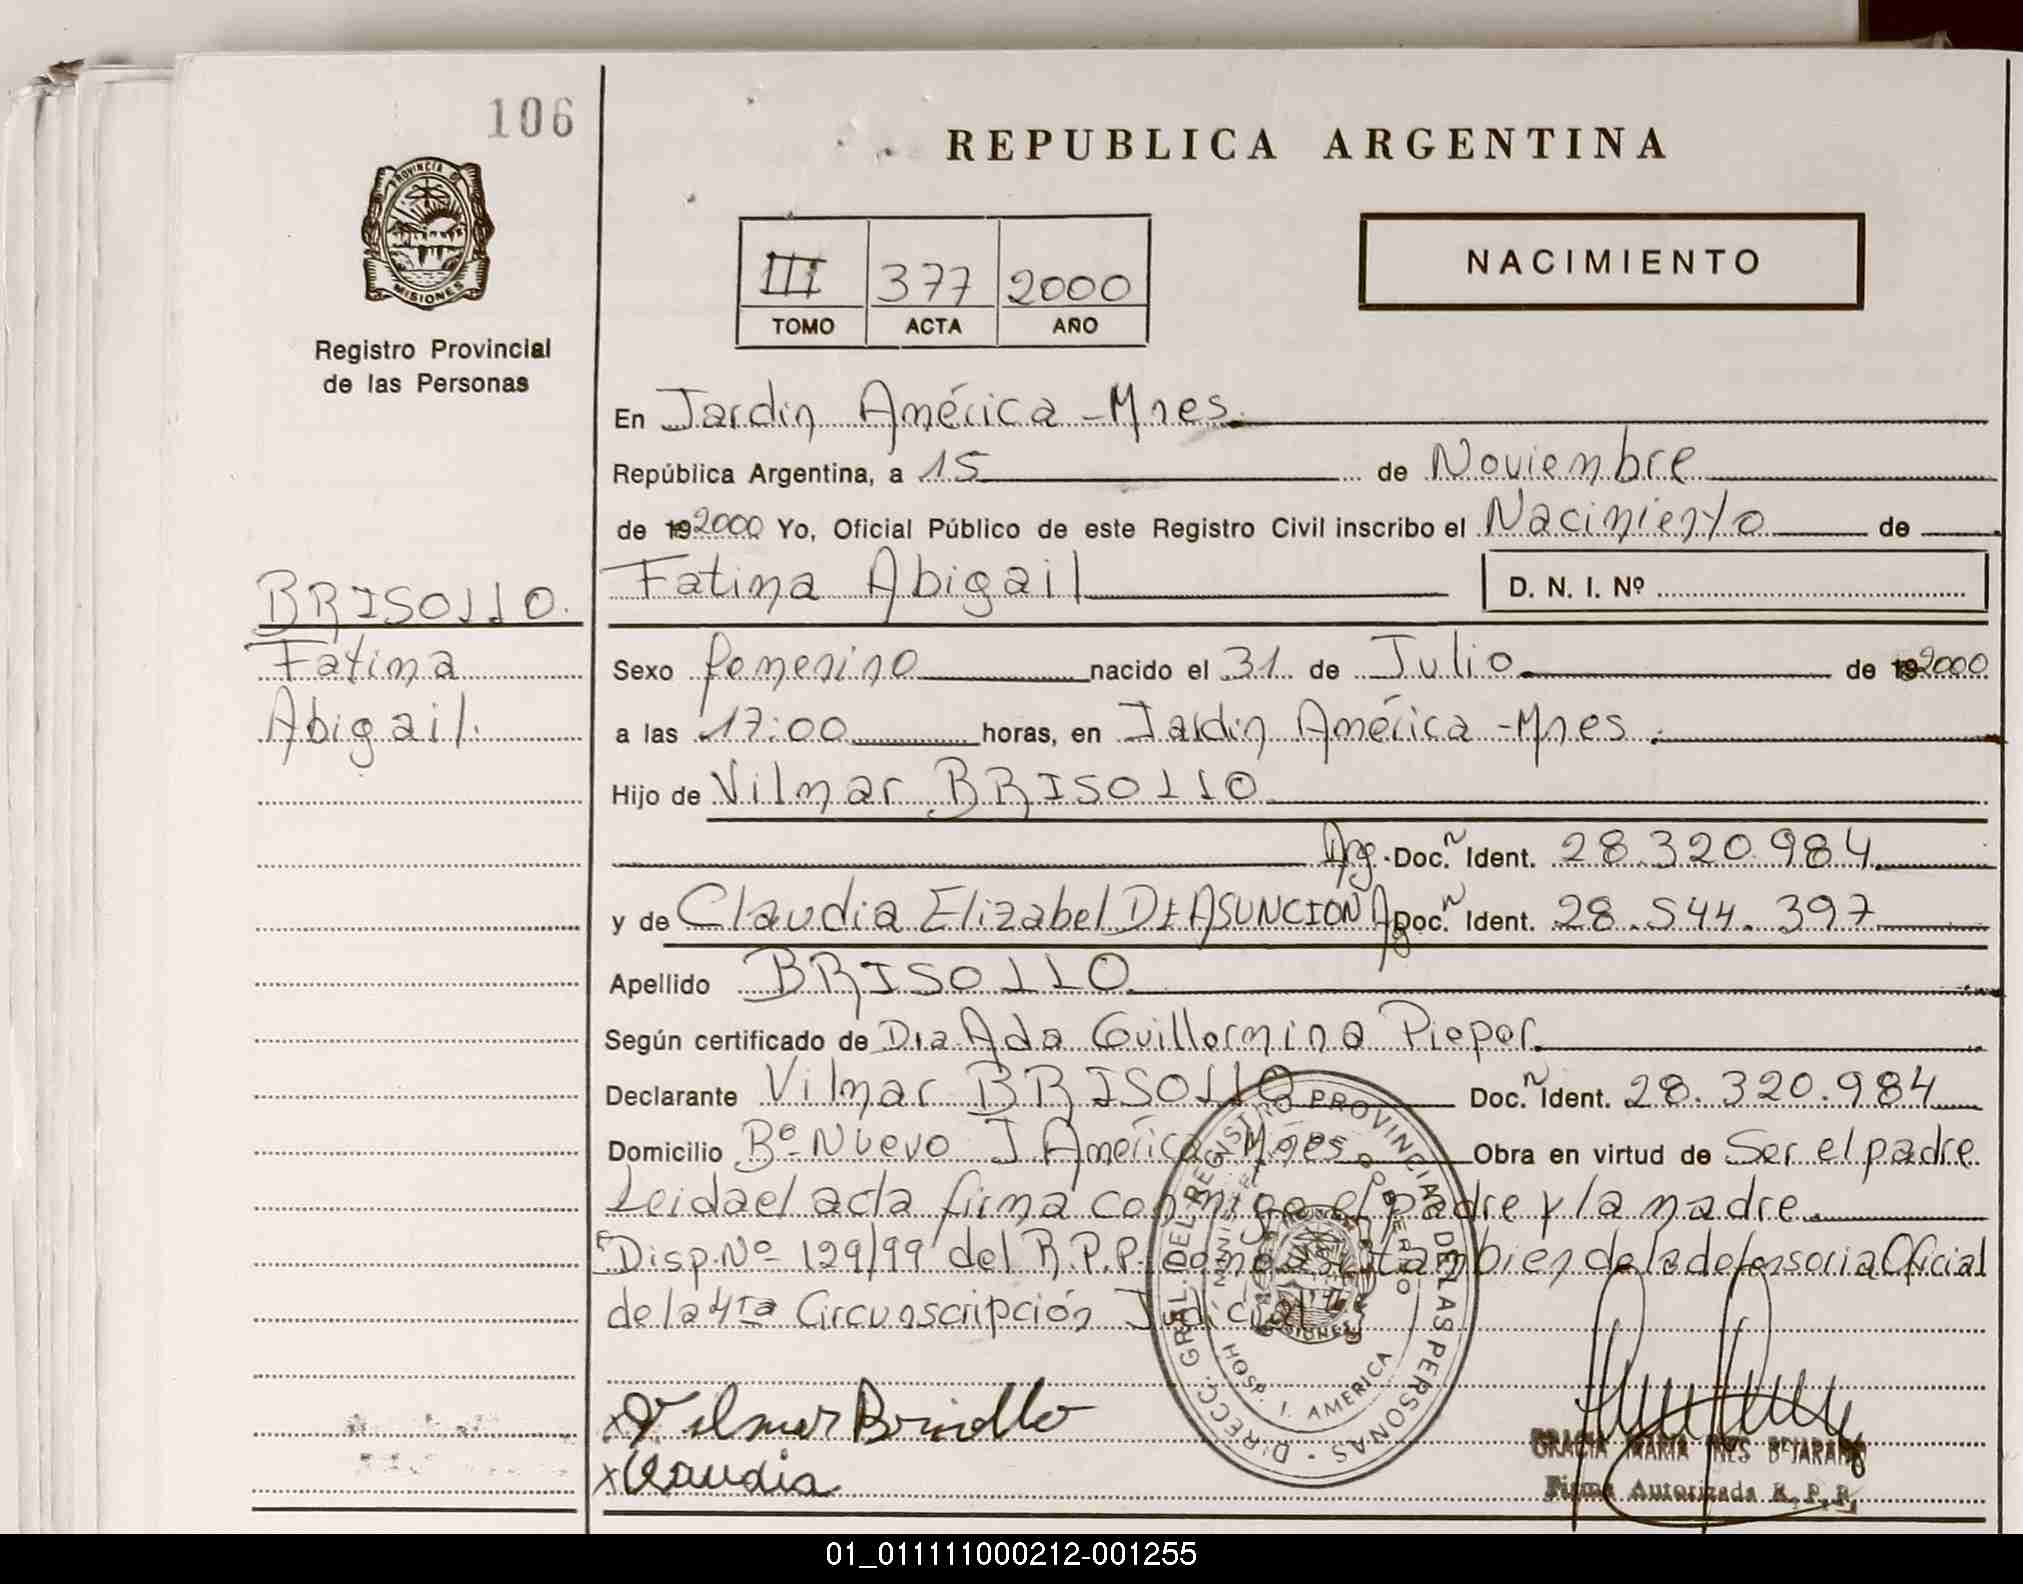 106
PROVINCIA D
MISIONES
Registro Provincial
de las Personas
BRISOLLO.
Fatima
Abigail.
REPUBLICA ARGENTINA
III 377 2000
TOMO ACTA AÑO
NACIMIENTO
En Jardin América - Mnes.
República Argentina, a 15 de Noviembre
de 192000 Yo, Oficial Público de este Registro Civil inscribo el Nacimiento de
Fatima Abigail D. N. I. Nº
Sexo femenino nacido el 31 de Julio de 192000
a las 17:00 horas, en Jardin América - Mnes.
Hijo de Vilmar BRISOLLO
Arg. Doc.n Ident. 28.320.984
y de Claudia Elizabel DE ASUNCIÓN Ag Doc.n Ident. 28.544.397
Apellido BRISOLLO
Según certificado de Dra Ada Guillermina Pieper.
Declarante Vilmar BRISOLLO Doc.n Ident. 28.320.984
Domicilio Bº Nuevo J América Mnes Obra en virtud de Ser el padre
Leida el acta firma conmigo el padre y la madre.
Disp. Nº 129/99 del R.P.P. como tambien de la defensoria Oficial
de la 4ta Circunscripción Judicial
DIRECC. GRAL. DEL REGISTRO PROVINCIAL DE LAS PERSONAS
HOSP. J. AMERICA
x Vilmar Brisollo
x Claudia
GRACIA MARIA INES BEJARANO
Firma Autorizada R. P. P.
01_011111000212-001255